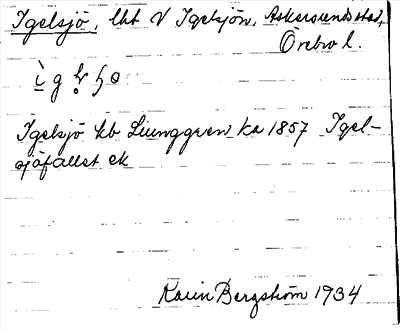 Igelsjö, lht V Igelsjön, Askersunds stad,
Örebro l.
Igelsjö kb Ljunggren ka 1857 Igel-
sjöfallet ek
Karin Bergström 1934